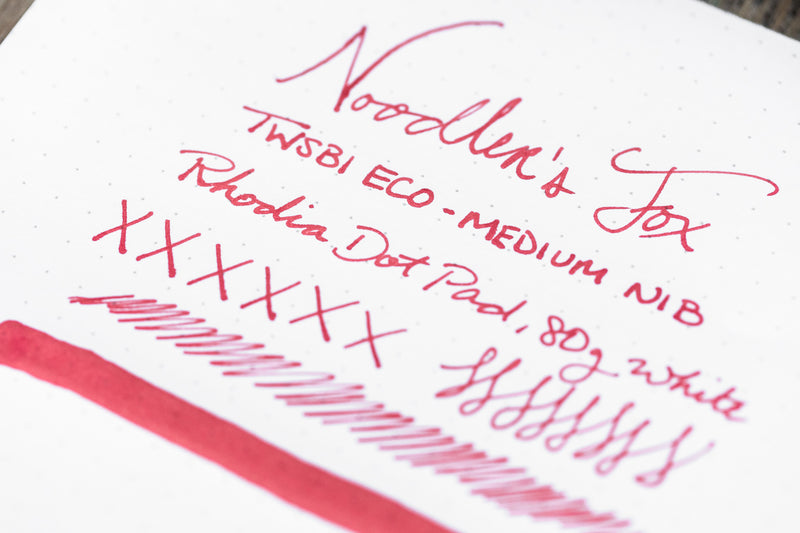 Noodler's Fox
TWSBI ECO - MEDIUM NIB
Rhodia Dot Pad, 80g white
X X X X X X